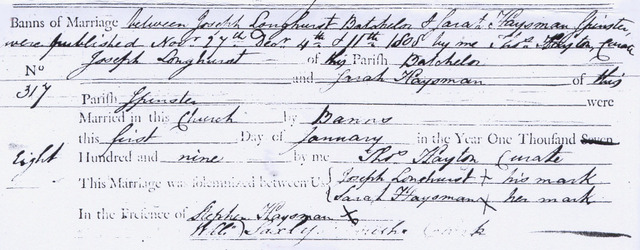 Banns of Marriage between Joseph Longhurst Batchelor & Sarah Haysman Spinster,
were published Novr 27th Decr 4th & 11th 1808 by me Thos Hayton Curate
Joseph Longhurst of this Parish Batchelor
No and Sarah Haysman of this
317
Parish Spinster were
Married in this Church by Banns
this first Day of January in the Year One Thousand Seven
Eight Hundred and nine by me Thos Hayton Curate
This Marriage was solemnized between Us { Joseph Longhurst X his mark
Sarah Haysman X her mark
In the Presence of Stephen Haysman X